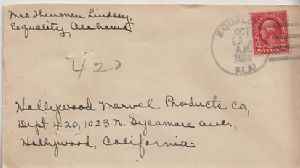 Mrs. Thurman Lindsey,
Equality, Alabama
EQUALITY
OCT
A.M.
ALA
420
Hollywood Marvel Products Co,
Dept 420, 1023 N. Sycamore Ave.,
Hollywood, California.